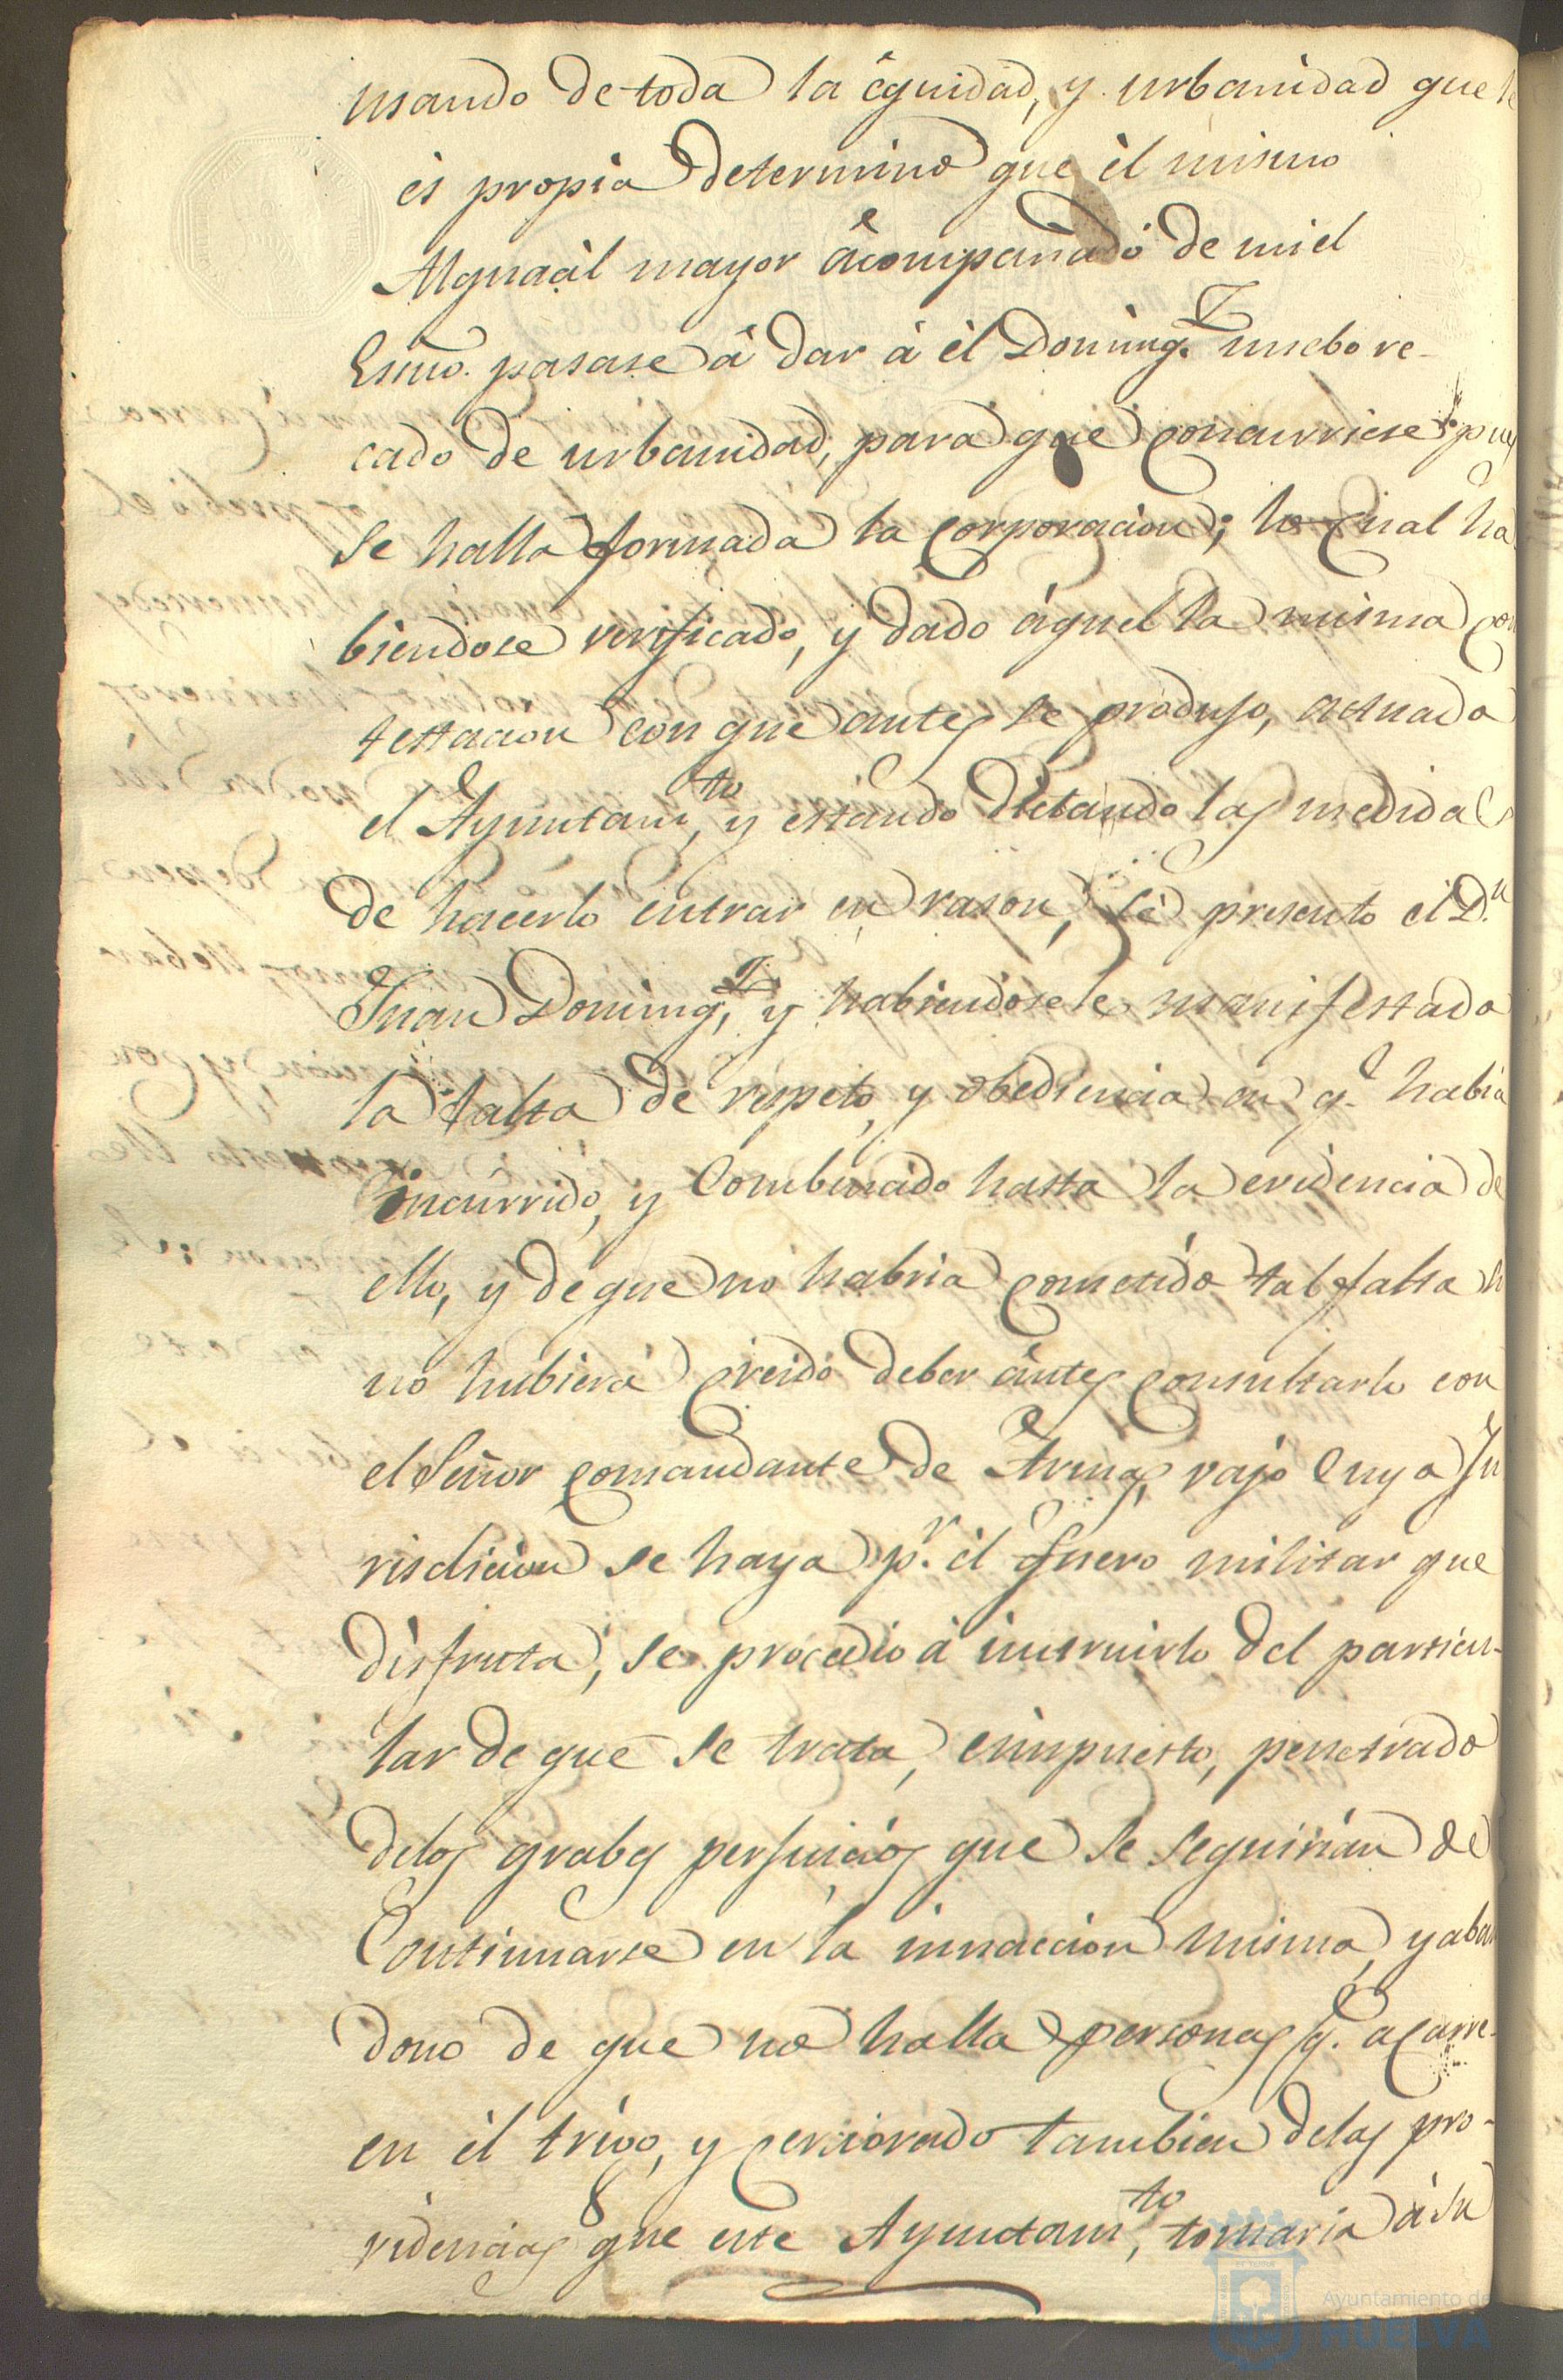 usando de toda la êquidad, y urbanidad que le
ès propia determinò que èl mismo
Alguacil mayor âcompañadó de mi el
Essno. pasase â dar à èl Domingz. nuebo re-
cado de urbanidad, para que concurriese pues
se halla formada la Corporacion; lo Cual ha
biendose verificado, y dado áquel la misma con
testacion con que antes se produjo, actuada
el Ayuntamto, y estando dictando las medidas
de hacerlo entrar en rason, se presento el Dn.
Juan Domingz, y habiendosele manifestado
la falta de respeto, y obediencia en qe. habia
Yncurrido, y Combencido hasta la evidencia de
ello, y de que no habria cometido tal falta si
no hubiera creido deber ântes consultarlo con
el Señor comandante de Armas, vajo Cuya Ju
risdicion se haya pr. èl fuero militar que
disfruta, se procedio á instruirlo del particu-
lar de que se trata, èimpuesto, penetrado
delos grabes perjuicios que se seguirian de
Continuarse en la innaccion misma, y aban
dono de que no halla personas qe. acarre-
en èl trigo, y cerciorado tambien delas pro-
videncias que este Ayuntamto, tomaria á su
Ayuntamiento de
HUELVA